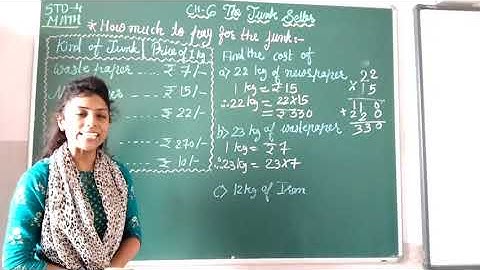 STD-4
MATH
CH-6 The Junk Seller
* How much to pay for the Junk:-
Kind of Junk Price of 1 kg
Waste paper .... ₹ 7/-
₹ 15/-
₹ 22/-
₹ 270/-
₹ 10/-
Find the cost of
a) 22 kg of newspaper
1 kg = ₹ 15
∴ 22 kg = 22×15
= ₹ 330
22
×15
110
+220
330
b) 23 kg of wastepaper
1 kg = ₹ 7
∴ 23 kg = 23×7
c) 12 kg of Iron